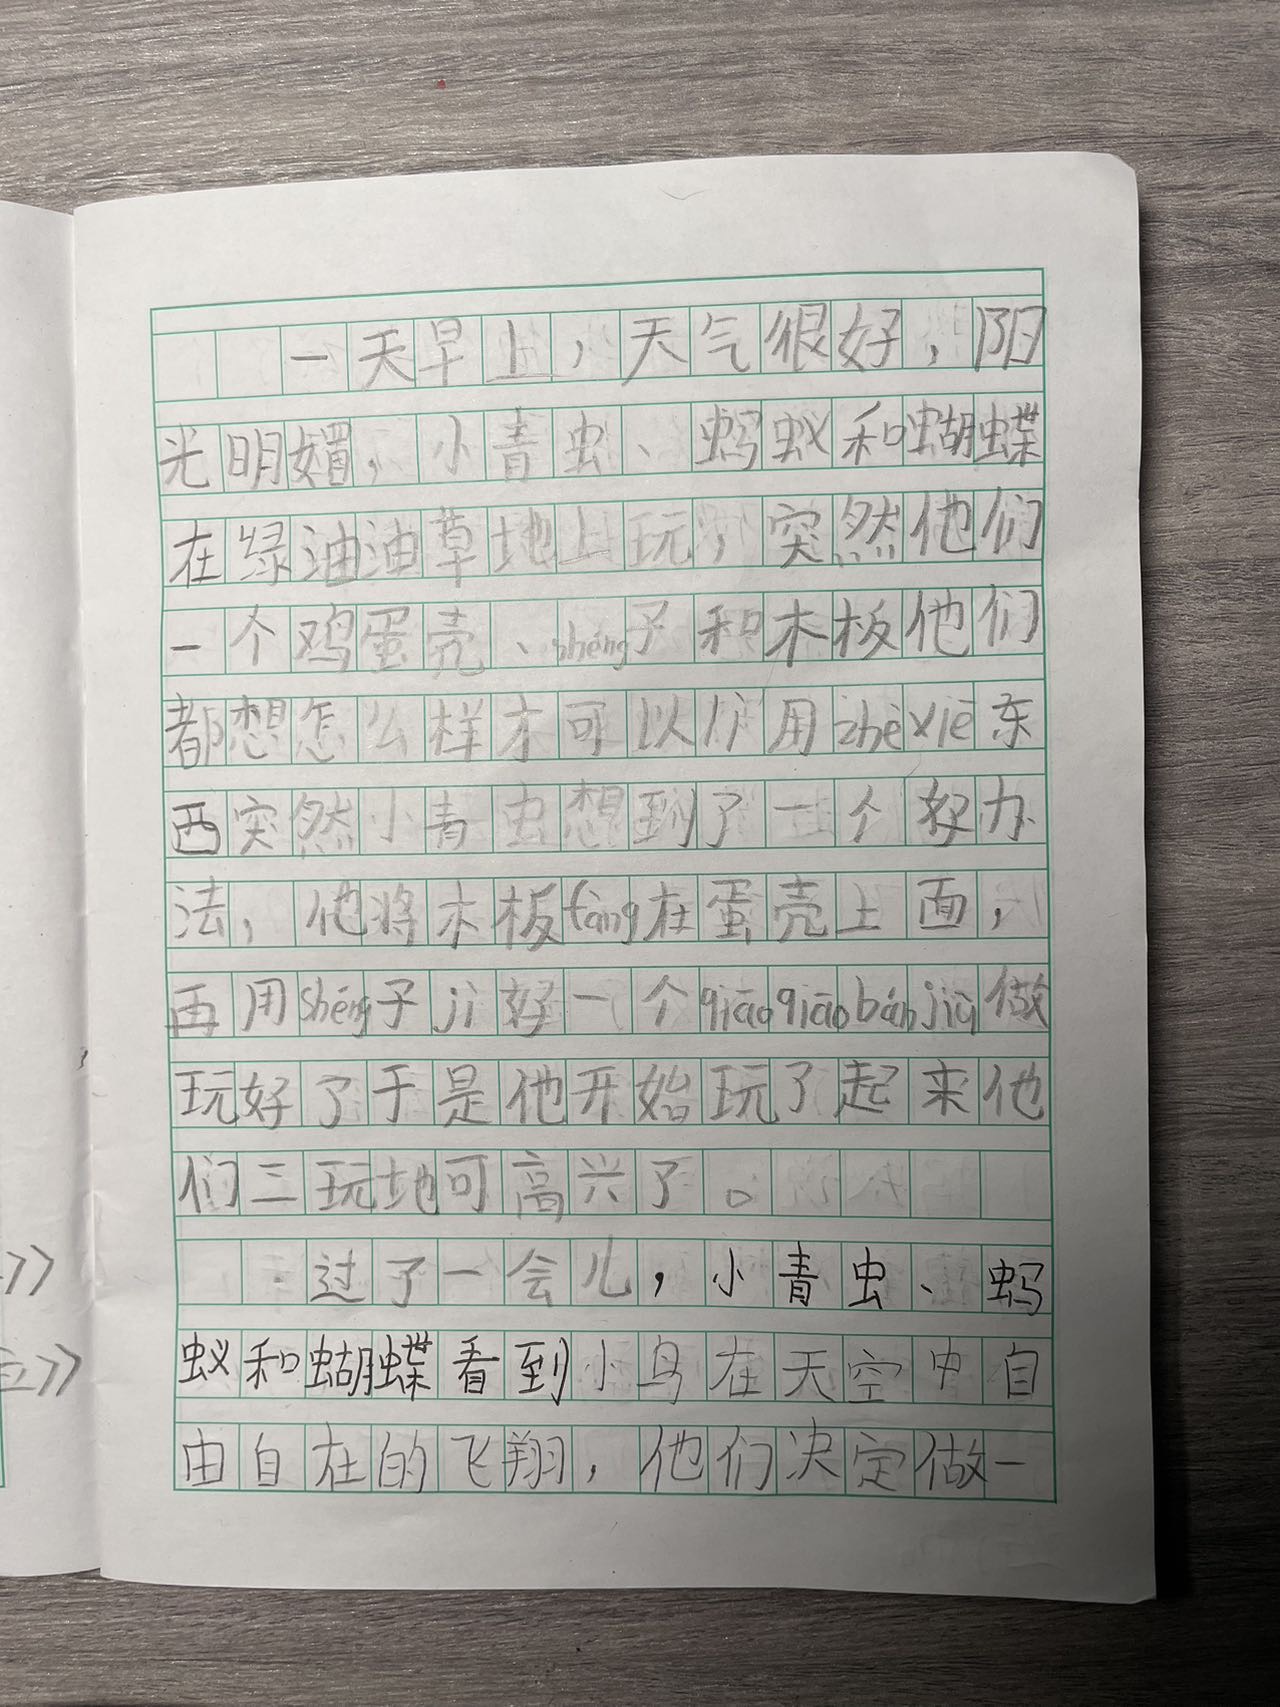 一天早上，天气很好，阳
光明媚，小青虫、蚂蚁和蝴蝶
在绿油油草地上玩，突然他们
一个鸡蛋壳、shéng子和木板他们
都想怎么样才可以用zhèxiē东
西突然小青虫想到了一个好办
法，他将木板fàng在蛋壳上面，
再用shéng子jì好一个qiāoqiāobǎnjiù做
玩好了于是他开始玩了起来他
们三玩地可高兴了。
过了一会儿，小青虫、蚂
蚁和蝴蝶看到小鸟在天空中自
由自在的飞翔，他们决定做一
》
》